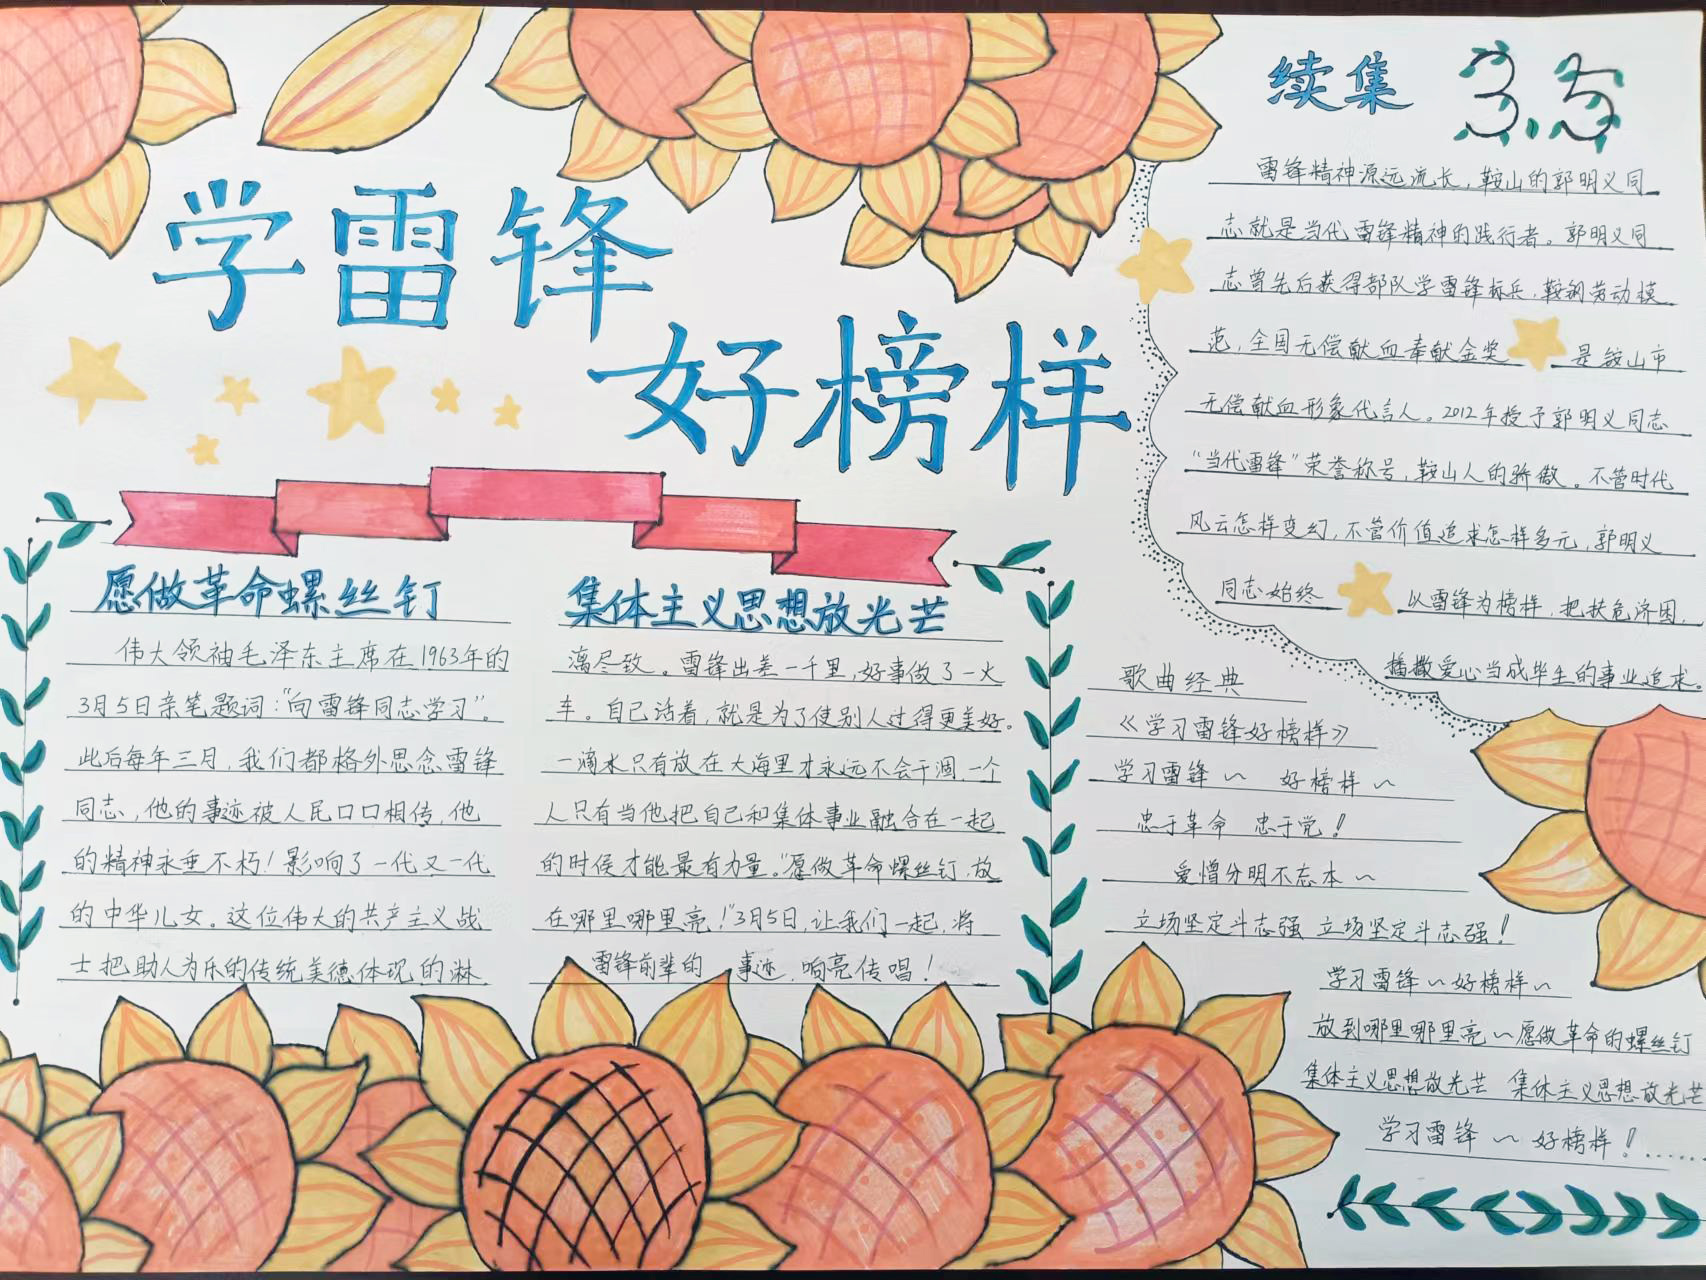 学雷锋
好榜样
愿做革命螺丝钉
伟大领袖毛泽东主席在1963年的
3月5日亲笔题词："向雷锋同志学习"。
此后每年三月，我们都格外思念雷锋
同志，他的事迹被人民口口相传，他
的精神永垂不朽！影响了一代又一代
的中华儿女。这位伟大的共产主义战
士把助人为乐的传统美德体现的淋
集体主义思想放光芒
漓尽致。雷锋出差一千里，好事做了一火
车。自己活着，就是为了使别人过得更美好。
一滴水只有放在大海里才永远不会干涸，一个
人只有当他把自己和集体事业融合在一起
的时候才能最有力量。"愿做革命螺丝钉，放
在哪里哪里亮！"3月5日，让我们一起，将
雷锋前辈的 事迹，响亮传唱！
续集 3.5
雷锋精神源远流长，鞍山的郭明义同
志就是当代雷锋精神的践行者。郭明义同
志曾先后获得部队学雷锋标兵，鞍钢劳动模
范，全国无偿献血奉献金奖 是鞍山市
无偿献血形象代言人。2012年授予郭明义同志
"当代雷锋"荣誉称号，鞍山人的骄傲。不管时代
风云怎样变幻，不管价值追求怎样多元，郭明义
同志始终 以雷锋为榜样，把扶危济困，
播撒爱心当成毕生的事业追求。
歌曲经典
《学习雷锋好榜样》
学习雷锋～ 好榜样～
忠于革命 忠于党！
爱憎分明不忘本～
立场坚定斗志强 立场坚定斗志强！
学习雷锋～好榜样～
放到哪里哪里亮～愿做革命的螺丝钉
集体主义思想放光芒 集体主义思想放光芒
学习雷锋～好榜样！……